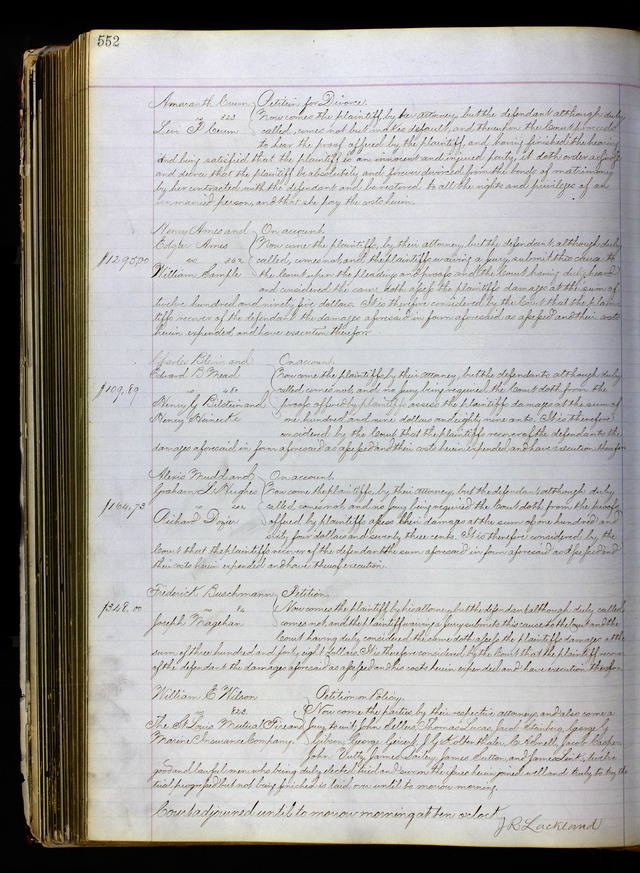 552
Amaranth Crum Petition for Divorce.
vs 223 Now comes the plaintiff by her attorney but the defendant although duly
Levi P. Crum called, comes not but makes default, and thereupon the Court proceeds
to hear the proof offered by the plaintiff, and having finished the hearing
and being satisfied that the plaintiff is an innocent and injured party, it doth order adjudge
and decree that the plaintiff be absolutely and forever divorced from the bonds of matrimony
by her contracted with the defendant and be restored to all the rights and privileges of an
unmarried person, and that she pay the costs herein.
Henry Ames and On account,
Edgar Ames Now come the plaintiffs, by their attorney, but the defendant, although duly
$1295,00 vs called, comes not, and the plaintiffs waiving a jury, submit this cause to
William Sample the Court upon the pleadings and proofs and the Court having duly heard
and considered the same doth assess the plaintiffs damages at the sum of
twelve hundred and ninety five dollars. It is therefore considered by the Court that the plain
tiffs recover of the defendant the damages aforesaid in form aforesaid as assessed and their costs
herein expended and have execution therefor.
Charles Blevin and On account,
Edward B. Mead Now come the plaintiffs, by their attorney, but the defendants, although duly
$109,89 vs called comes not, and no jury being required the Court doth from the
Henry and proofs offered by plaintiffs assess the plaintiffs damages at the sum of
Henry one hundred and nine dollars and eighty nine cents. It is therefore
considered by the Court that the plaintiffs recover of the defendants the
damages aforesaid in form aforesaid as assessed and their costs herein expended and have execution therefor.
Alexis Mudd and On account,
Graham L. Hughes Now come the plaintiffs, by their attorney, but the defendant although duly
$164,73 vs called comes not and no jury being required the Court doth from the proofs
Richard Dozier offered by plaintiffs assess their damages at the sum of one hundred and
sixty four dollars and seventy three cents. It is therefore considered by the
Court that the plaintiffs recover of the defendant the sum aforesaid in form aforesaid as assessed and
their costs herein expended and have thereof execution.
Frederick Buschmann Petition.
$348.00 vs Now comes the plaintiff by his attorney but the defendant although duly called
Joseph Magehan comes not, and the plaintiff waiving a jury submits this cause to the Court and the
Court having duly considered the same doth assess the plaintiffs damages at the
sum of three hundred and forty eight dollars. It is therefore considered by the Court that the plaintiff recover
of the defendant the damages aforesaid as assessed and his costs herein expended and have execution therefor.
William E. Wilson Petition on Policy.
vs 223. Now come the parties by their respective attorneys and also come a
The St Louis Mutual Fire and Jury to wit, John Sellers, Thomas Lucas, Jacob George
Marine Insurance Company. George Jacob
John James James Sutton and James twelve
good and lawful men who being duly elected tried and sworn the issue herein joined well and truly to try the
trial progressed but not being finished is laid over until to morrow morning.
Court adjourned until to morrow morning at ten o'clock.
J R Lackland